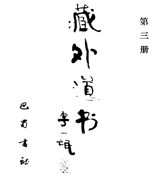 第三册
藏外道书
李一氓
巴蜀书社